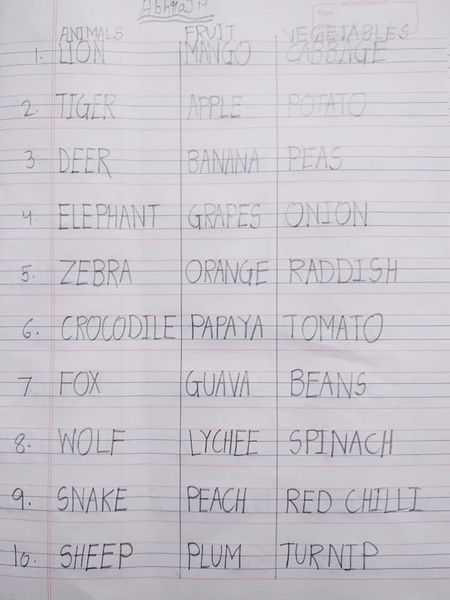 Abhyas
ANIMALS FRUIT VEGETABLES
1. LION MANGO CABBAGE
2. TIGER APPLE POTATO
3 DEER BANANA PEAS
4. ELEPHANT GRAPES ONION
5. ZEBRA ORANGE RADDISH
6. CROCODILE PAPAYA TOMATO
7 FOX GUAVA BEANS
8. WOLF LYCHEE SPINACH
9. SNAKE PEACH RED CHILLI
10. SHEEP PLUM TURNIP